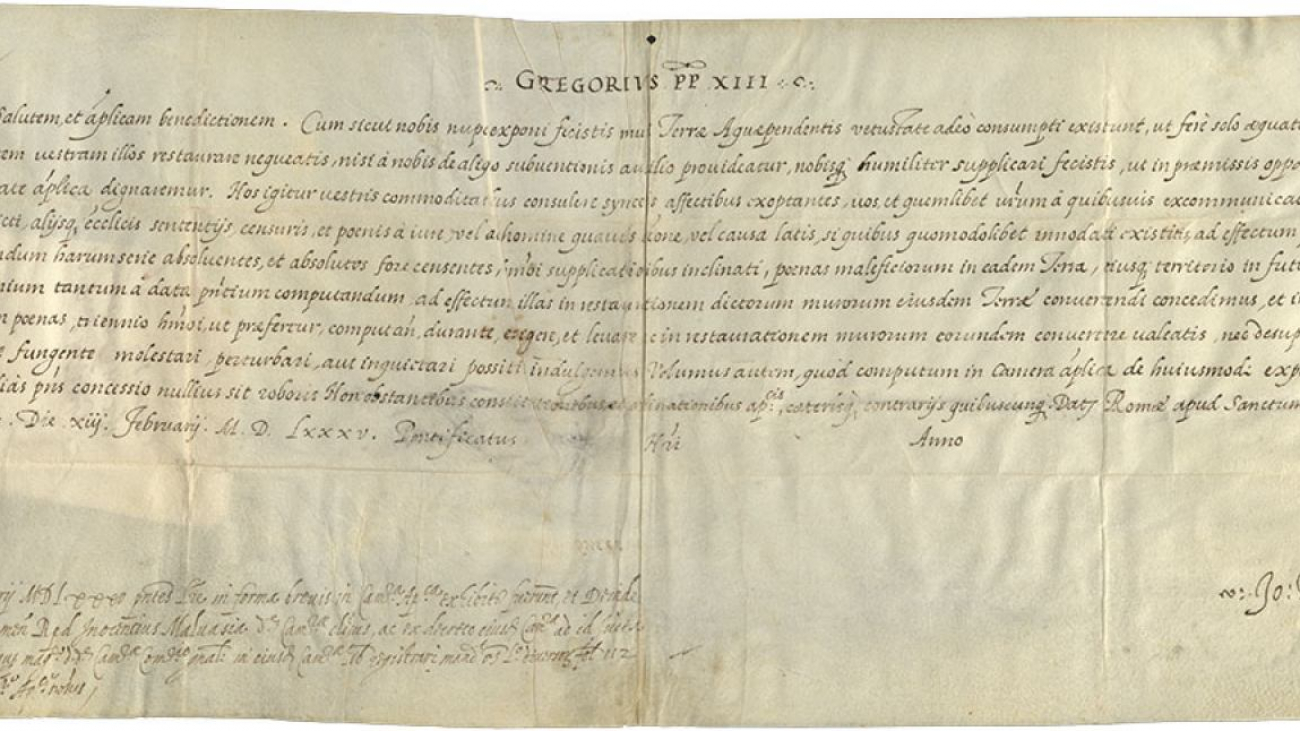 GREGORIVS PP XIII
salutem, et ap̃licam benedictionem. Cum sicut nobis nuper exponi fecistis muri Terræ Aquæpendentis vetustate adeò consumpti existunt, ut ferè solo æquat
em vestram illos restaurare nequeatis, nisi à nobis de aliqo subventionis auxilio provideatur, nobisq; humiliter supplicari fecistis, ut in præmissis oppo
tate ap̃lica dignaremur. Nos igitur vestris commoditatibus consulere synceris affectibus exoptantes, uos, et quemlibet ur̃um à quibusuis excommunica
cti, alijsq; ecclicis sententijs, censuris, et poenis à iure, vel ab homine quauis occasione, vel causa latis, si quibus quomodolibet innodati existitis, ad effectum
ndum harum serie absoluentes, et absolutos fore censentes, hm̃oi supplicationibus inclinati, poenas maleficiorum in eadem Terra, eiusq; territorio in futu
nium tantum à data pñtium computandum, ad effectum illas in restaurationem dictorum murorum eiusdem Terræ conuertendi concedimus, et i
poenas, triennio hm̃oi, ut præfertur, computan̄, durante, exigere, et leuare ac in restaurationem murorum eorundem convertere valeatis, nec desup
fungente molestari, perturbari, aut inquietari possitis indulgemus Volumus autem, quòd computum in Camera ap̃lica de huiusmodi exp
liàs pñs concessio nullius sit roboris Non obstantibus constitutionibus, et ordinationibus ap.cis, ceterisq; contrarijs quibuscunq; Dat̃ Romæ apud Sanctum
Die xiij. Februarij. M. D. Lxxxv. Pontificatus Nr̃i Anno
rij MDLxxxv pñtes Lr̃e in forma brevis in Cam.ra Ap.ca exhibite fuerunt, et Deinde
Innocentius Maluasia Cam.re clicus, ac ex decreto eiusd̃ Cam.re ad id
eiusd̃ Cam.re registrari fol 112
Jo: